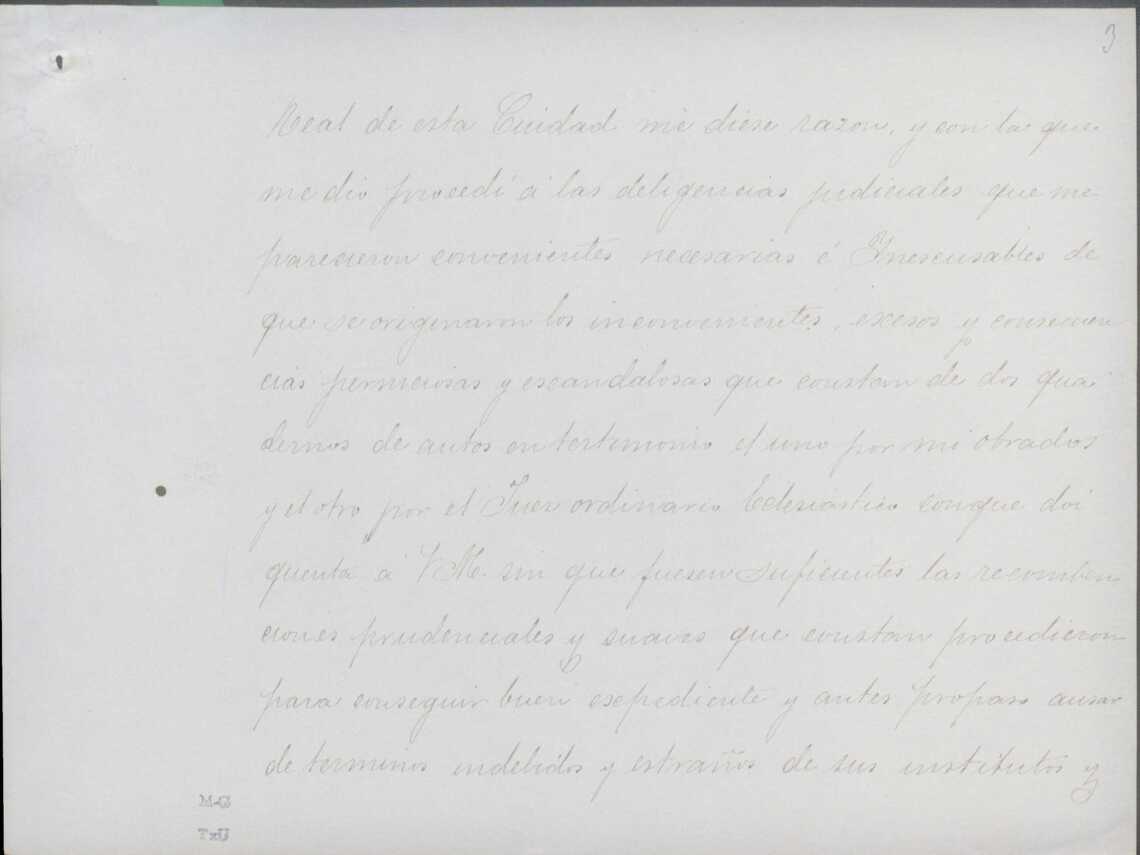 3
Real de esta Cuidad me diese razon, y con la que
me dio procedi á las deligencias judiciales que me
parecieron convenientes necesarias é Inescusables de
que se originaron los inconvenientes, exesos y consecuen
cias perniciosas y escandalosas que constan de dos qua
dernos de autos en testimonio el uno por mi obrados
y el otro por el Juez ordinario Eclesiástico conque doi
quenta á V.M. sin que fuesen suficientes las recomben
ciones prudenciales y suaves que constan procedieron
para conseguir buen expediente y antes propaso ausar
de terminos indebidos y estraños de sus institutos y
M-G
TxU